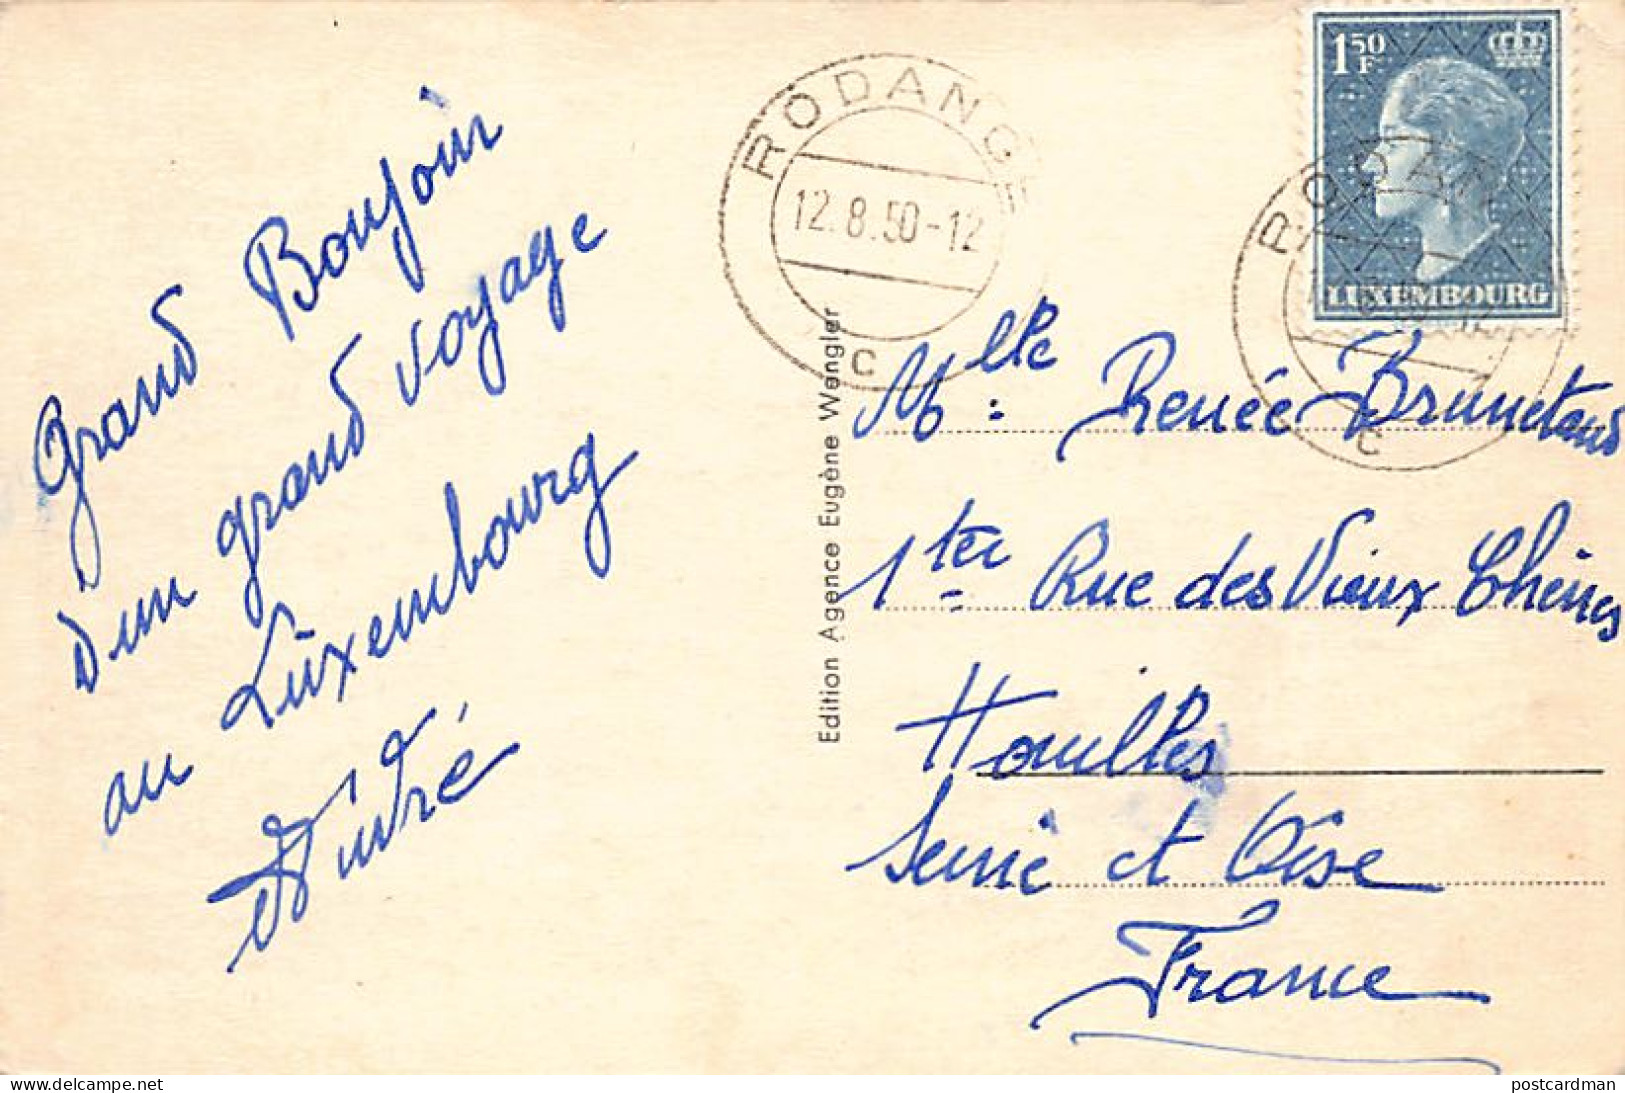 Grand Bonjour
d'un grand voyage
au Luxembourg
André
RODANGE
12.8.50-12
C
1 50 F
LUXEMBOURG
RODANGE
C
Edition Agence Eugène Wengler
Mlle Renée
Rue des Vieux Chênes
Houilles
Seine et Oise
France
delcampe.net
postcardman